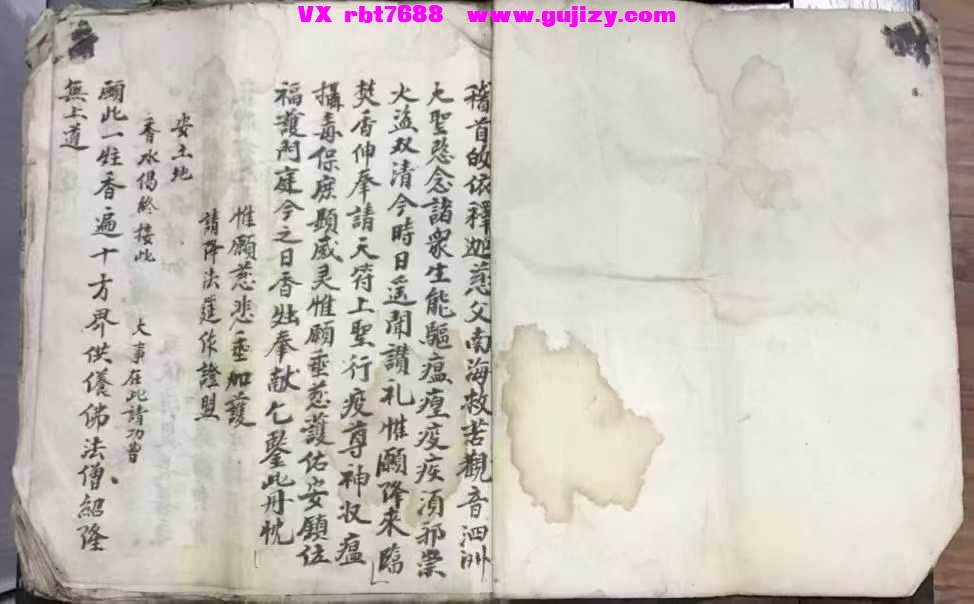 VX rbt7688 www.gujizy.com
稽首皈依釋迦慈父南海救苦觀音泗洲
大聖愍念諸眾生能驅瘟瘟疫疾須邪祟
火盜双清今時日遙聞讚礼惟願降來臨
焚香伸奉請天符上聖行疫尊神收瘟
攝毒保庶顯威灵惟願垂慈護佑安鎮位
福護門庭今之日香烛奉献乞鑒此丹忱
惟願慈悲垂加護
請降法筵作證盟
安土地
香水偈終接此
大事在此請功曹
願此一炷香遍十方界供養佛法僧紹隆
無上道